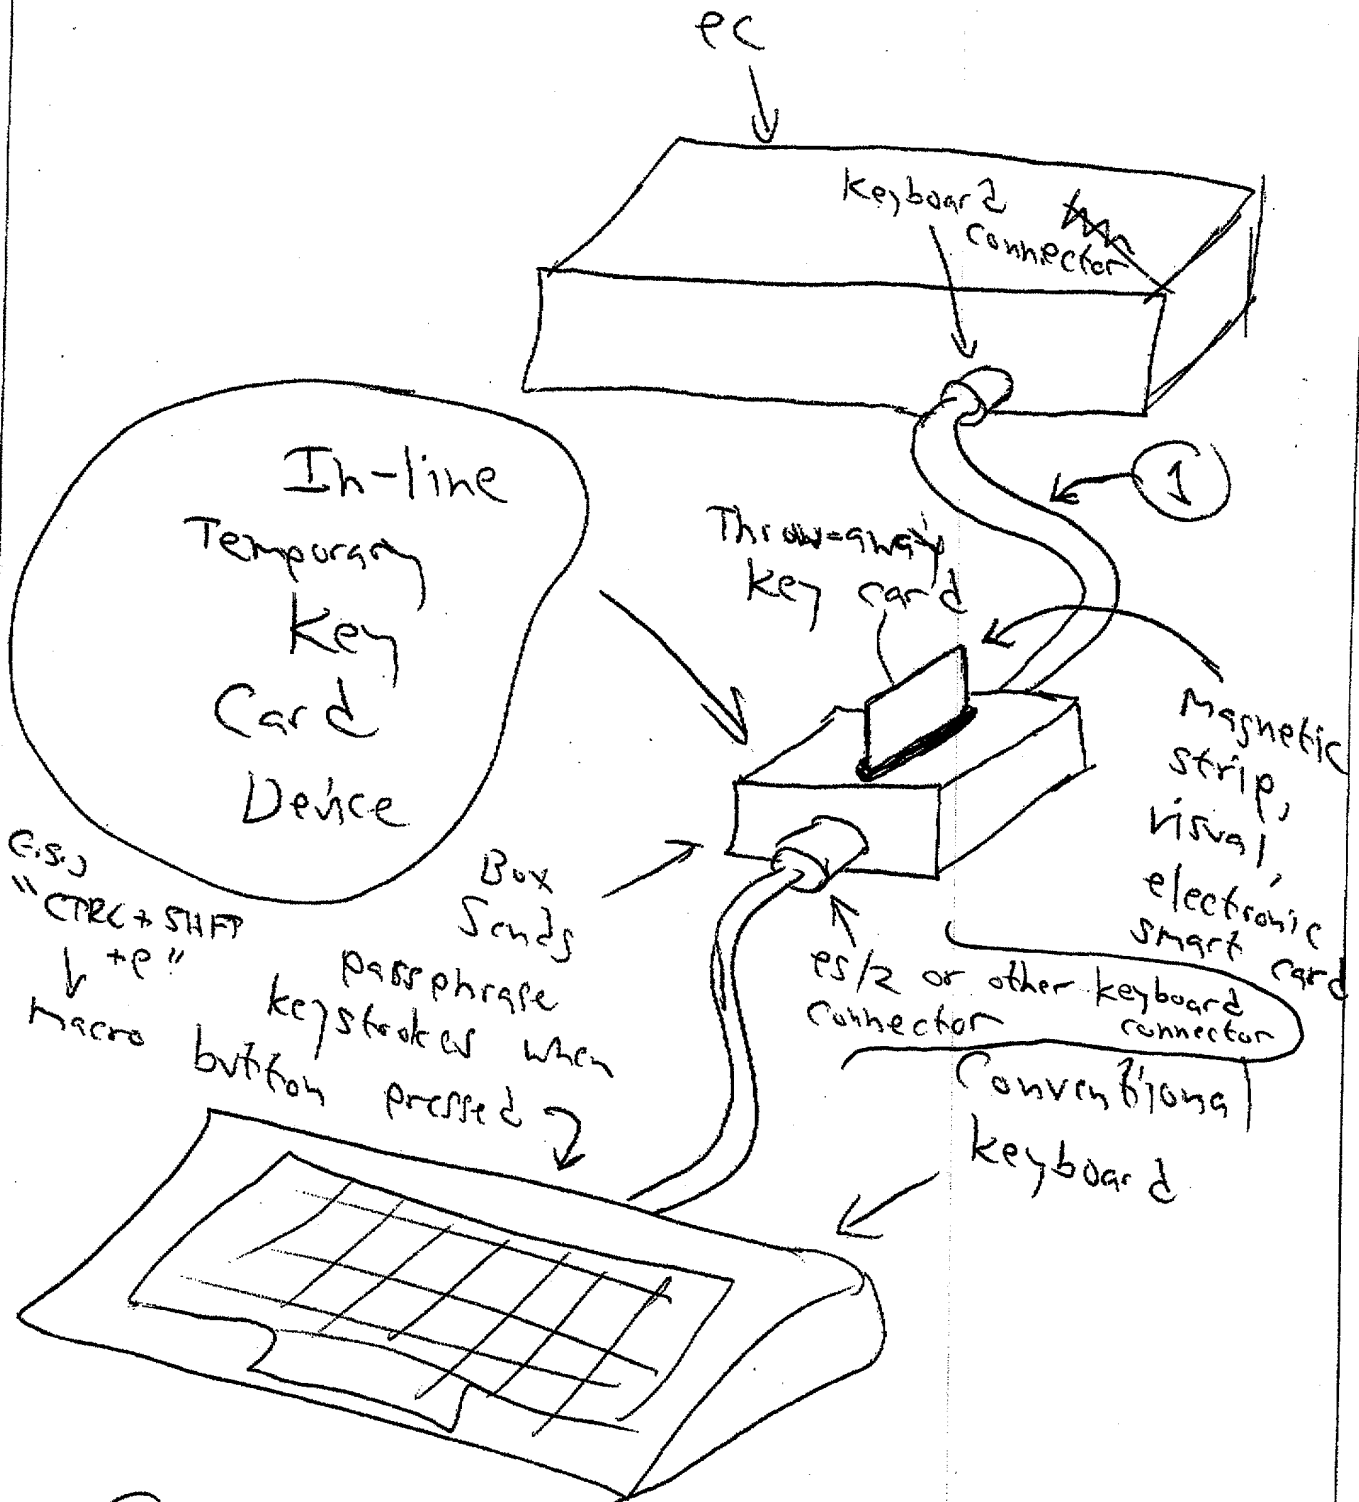 PC
Keyboard
connector
1
In-line
Temporary
Key
Card
Device
Throw-away
key card
Magnetic
strip,
visual,
electronic
smart card
E.g.,
"CTRL + SHFT
+P"
Box
Sends
passphrase
keystrokes when
macro button pressed
PS/2 or other keyboard
connector
connector
Conventional
keyboard